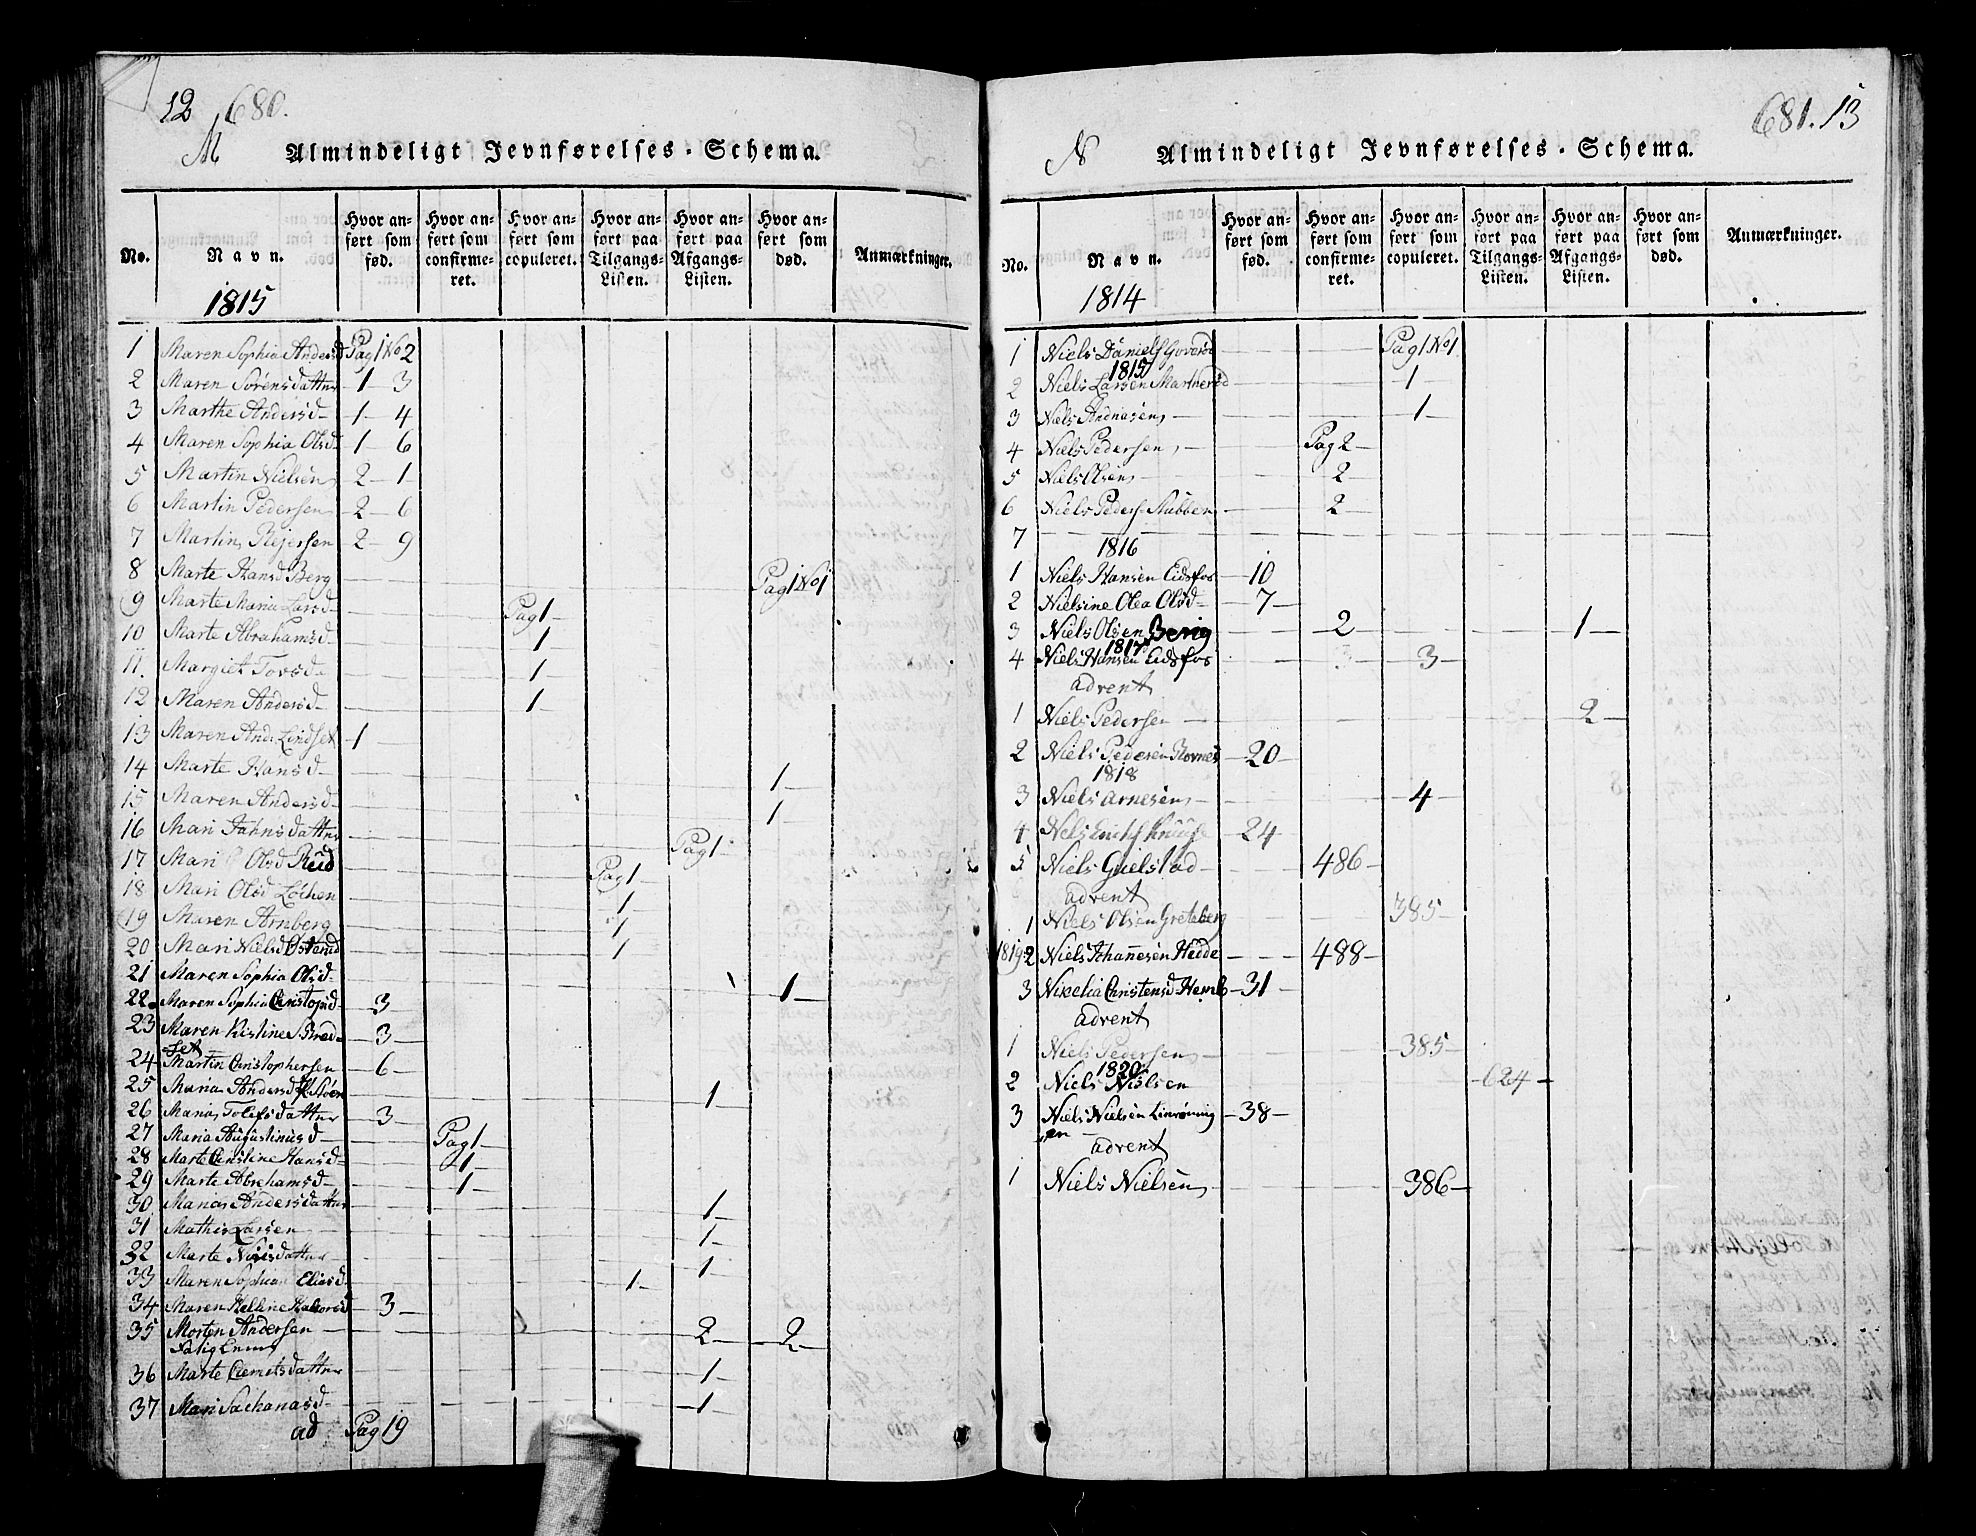 12 680.
M Almindeligt Jevnførelses-Schema.
No.
Navn.
Hvor an-
ført som
fød.
Hvor an-
ført som
confirme-
ret.
Hvor an-
ført som
copuleret.
Hvor an-
ført paa
Tilgangs-
Listen.
Hvor an-
ført paa
Afgangs-
Listen.
Hvor an-
ført som
død.
Anmærkninger.
1815
1 Maren Sophia Andersd Pag 1 No 2
2 Maren Sørensdatter 1 3
3 Marthe Andersd 1 4
4 Maren Sophia Olsd 1 6
5 Martin Nielsen 2 1
6 Martin Pedersen 2 6
7 Martin Rejersen 2 9
8 Marte Hansd Berg Pag 1 No 1
9 Marte Maria Larsd Pag 1
10 Marte Abrahamsd 1
11. Margiet Torsd 1
12 Maren Andersd 1
13 Maren And: Lindset 1
14 Marte Hansd 1
15 Maren Andersd 1
16 Mari Jahnsdatter Pag 1
17 Mari Olsd Rud Pag 1
18 Mari Olsd Løchen 1
19 Maren Arnberg 1
20 Mari Nielsd 1
21 Maren Sophia Olsd 1
22 Maren Sophia Christophd 3
23 Maren Kistine Bred-
set 3
24 Martin Christophersen 6
25 Maria Andersd 1
26 Maria Tolefsdatter 3
27 Maria Augustinusd Pag 1
28 Marte Christine Hansd 1
29 Marte Abrahamsd 1
30 Maria Andersdatter 1
31 Mathis Larsen 1
32 Marte Nilsdatter 1
33 Maren Sophia Eliasd 1
34 Maren Helline Halvorsd 3
35 Morten Andersen 2 2
36 Marte Clemetsdatter 1
37 Mari Sachariasd 1
ad Pag 19
681. 13
N Almindeligt Jevnførelses-Schema.
No.
Navn.
Hvor an-
ført som
fød.
Hvor an-
ført som
confirme-
ret.
Hvor an-
ført som
copuleret.
Hvor an-
ført paa
Tilgangs-
Listen.
Hvor an-
ført paa
Afgangs-
Listen.
Hvor an-
ført som
død.
Anmærkninger.
1814
1 Niels Daniels Pag 1 No 1
1815
2 Niels Larsen 1
3 Niels Andersen 1
4 Niels Pedersen Pag 2
5 Niels Olsen 2
6 Niels Peders Stubben 2
7
1816
1 Niels Hansen Eidsfos 10
2 Nielsine Olea Olsd 7
3 Niels Olsen Berig 2 1
1817
4 Niels Hansen Eidsfos 3 3
advent
1 Niels Pedersen 2
2 Niels Pedersen 20
1818
3 Niels Arnesen 4
4 24
5 Niels Guelstad 486
advent
1 Niels Olsen Greteberg 385
1819 2 Niels Johannesen Hedde 488
3 Nikelia Christensd Hemb 31
advent
1 Niels Pedersen 385
1820
2 Niels Nielsen 624
3 Niels Nielsen 38
advent
1 Niels Nielsen 386